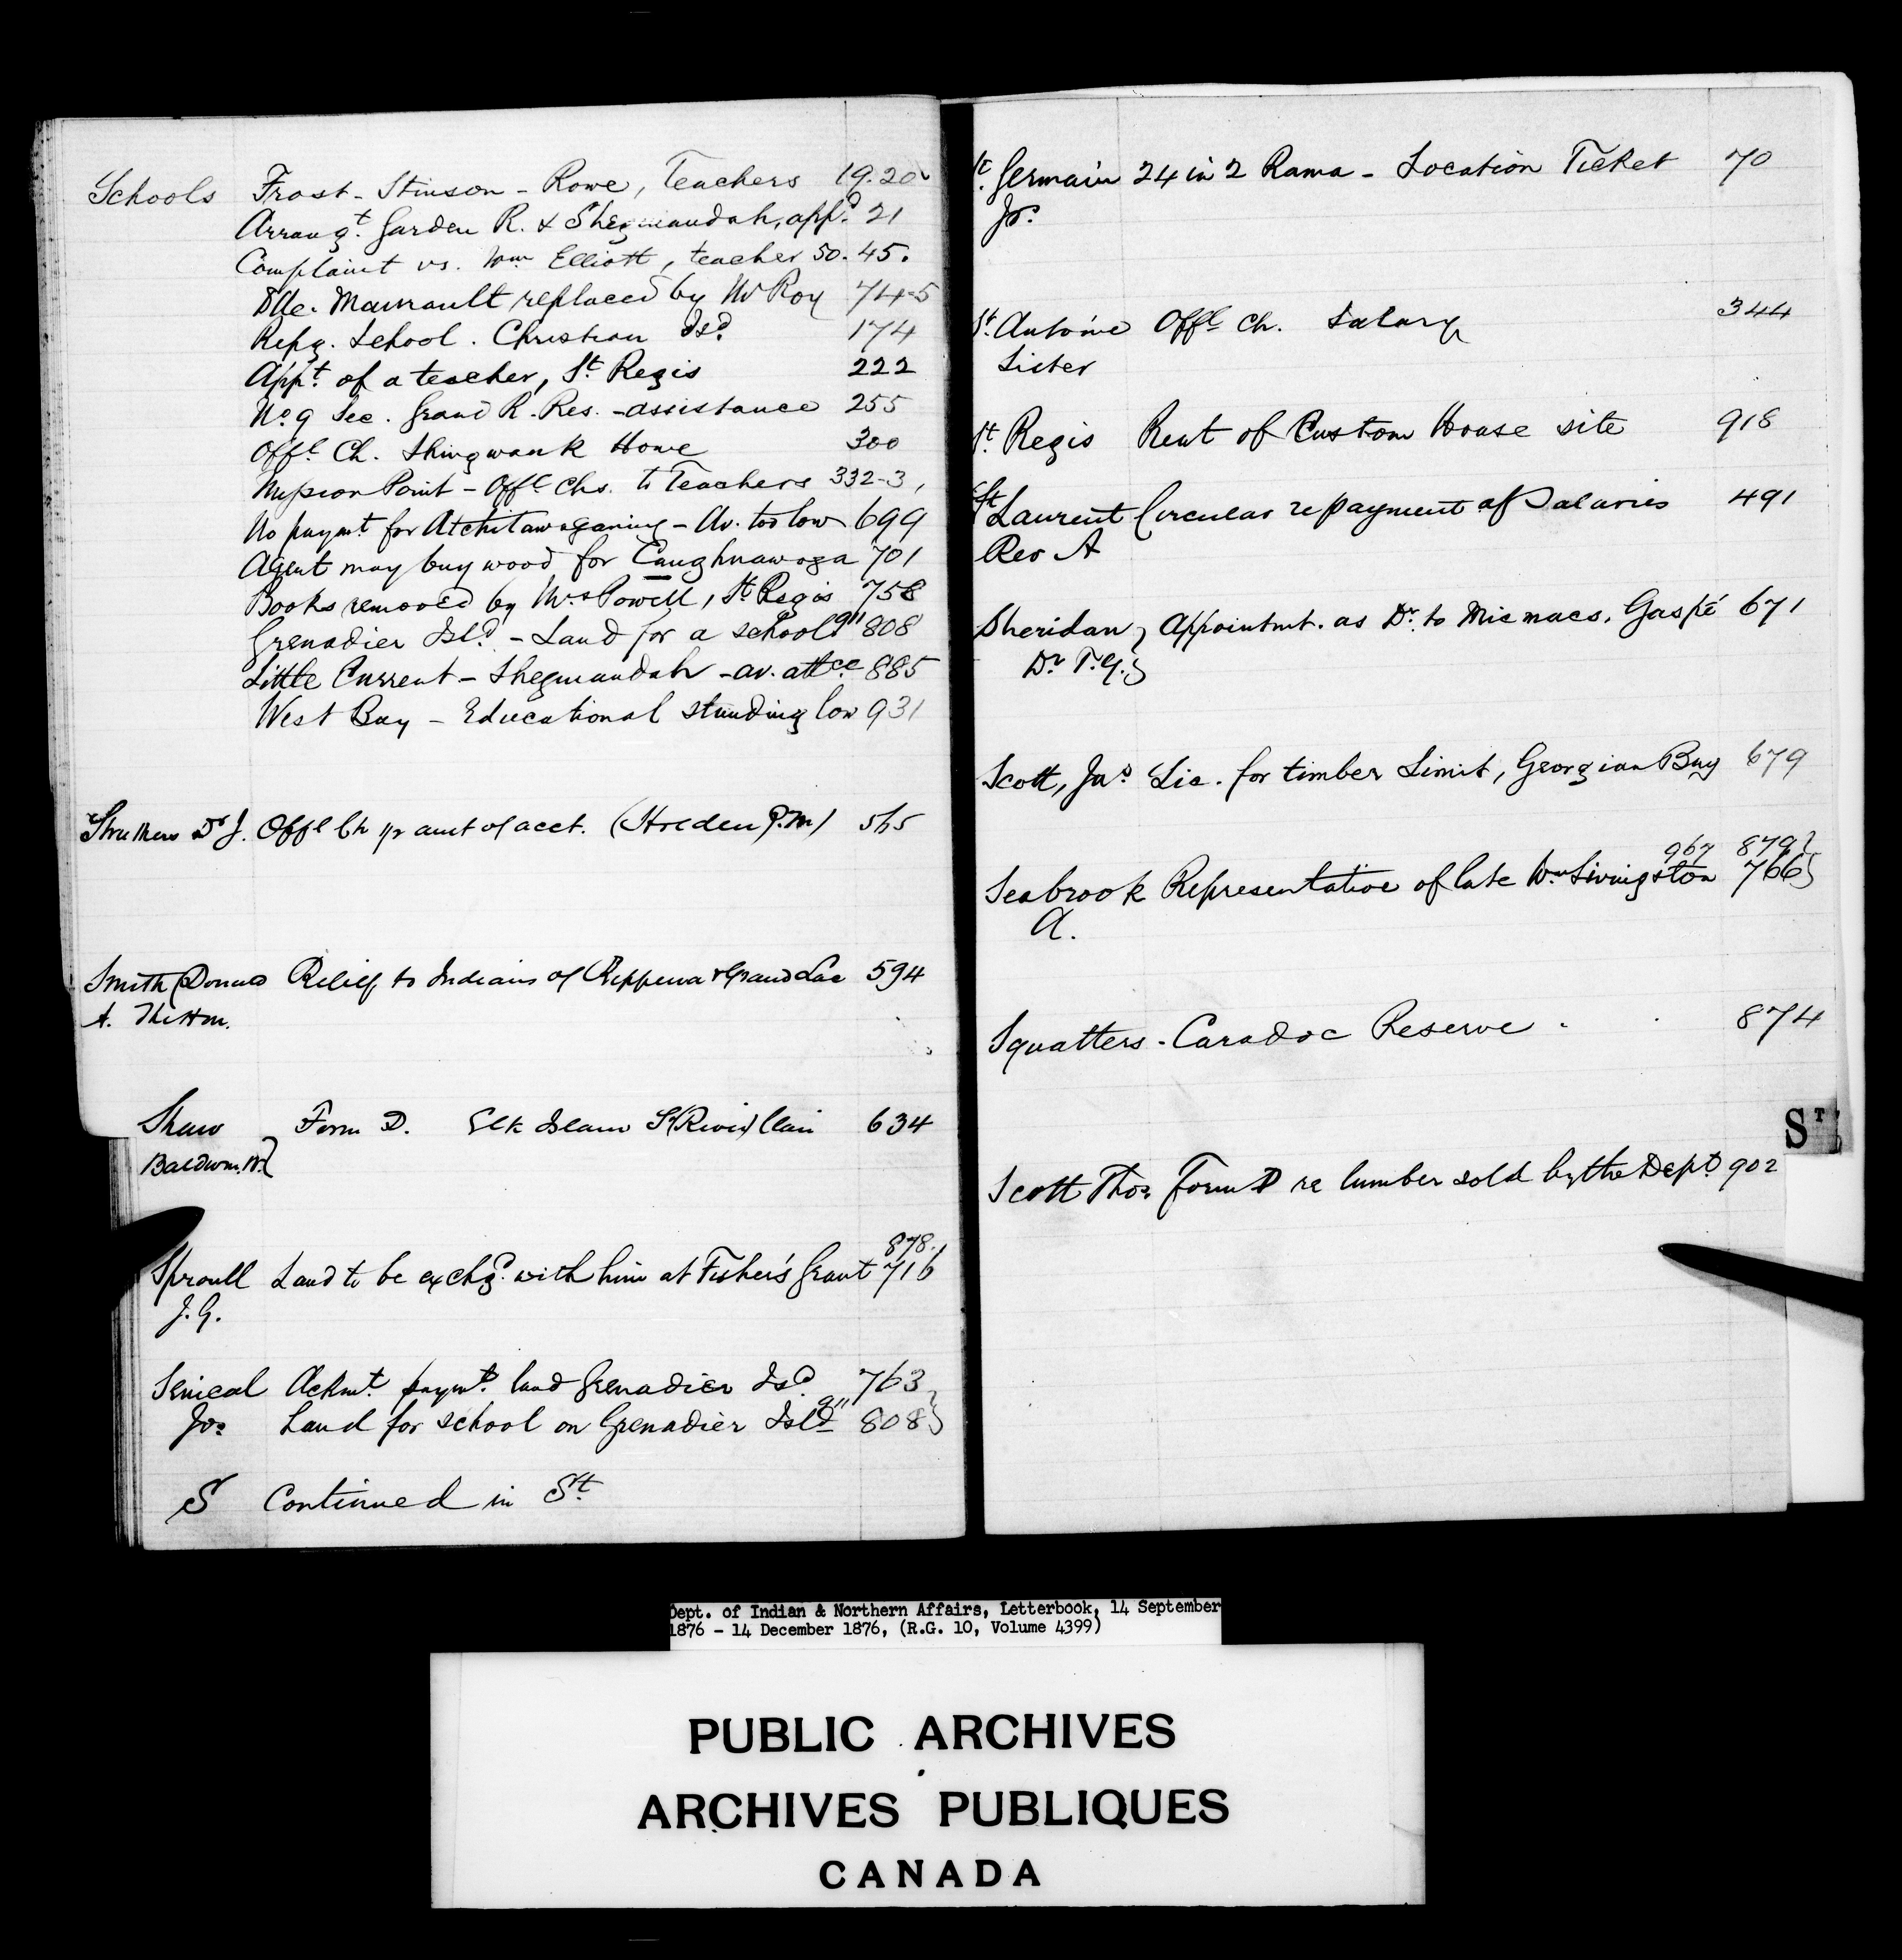 Schools Frost - Stinson - Rowe, Teachers 19.20
Arrangt. Garden R. & Shegmandah, appd. 21
Complaint vs. Wm Elliott, teacher 50.45.
Dlle. replaced by Mr Roy 74-5
Repg. School. Christian Isd. 174
Appt. of a teacher, St Regis 222
No. 9 Sec. Grand R. Res. - assistance 255
Offl Ch. Shingwauk Home 300
Mission Point - Offl Chs. to Teachers 332-3,
No paymt. for Atchitawaganing - Av. too low 699
Agent may buy wood for Caughnawaga 701
Books removed by Mrs Powell, St Regis 758
Grenadier Isld. - Land for a school 911 808
Little Current - Shegmandah - av. attce. 885
West Bay - Educational standing low 931
Struthers Dr J. Offl Ch pr amt of acct. (Holden P.M) 565
Smith (Donald Relief to Indians of & Grand Lac 594
A.
Shaw Form D. Elk Island St (River) Clair 634
Baldwin.
878.
Sproull Land to be exchgd. with him at Fisher's Grant 716
J.G.
Senical Acknt. paymt. land Grenadier Isd. 763
Jos. Land for school on Grenadier Isld 911 808
S Continued in St.
St. Germain 24 in 2 Rama - Location Ticket 70
Jos.
St. Antoine Offl Ch. Salary 344
Sister
St. Regis Rent of Custom House site 918
St Laurent Circular re payment of Salaries 491
Rev A
Sheridan Appointmt. as Dr. to Micmacs, Gaspé 671
Dr T.G.
Scott, Jas Lic. for timber Limit, Georgian Bay 679
967 879
Seabrook Representative of late Wm Livingston 766
A.
Squatters - Caradoc Reserve - 874
ST
Scott Thos. Form D re lumber sold by the Dept 902
Dept. of Indian & Northern Affairs, Letterbook, 14 September
1876 - 14 December 1876, (R.G. 10, Volume 4399)
PUBLIC ARCHIVES
ARCHIVES PUBLIQUES
CANADA